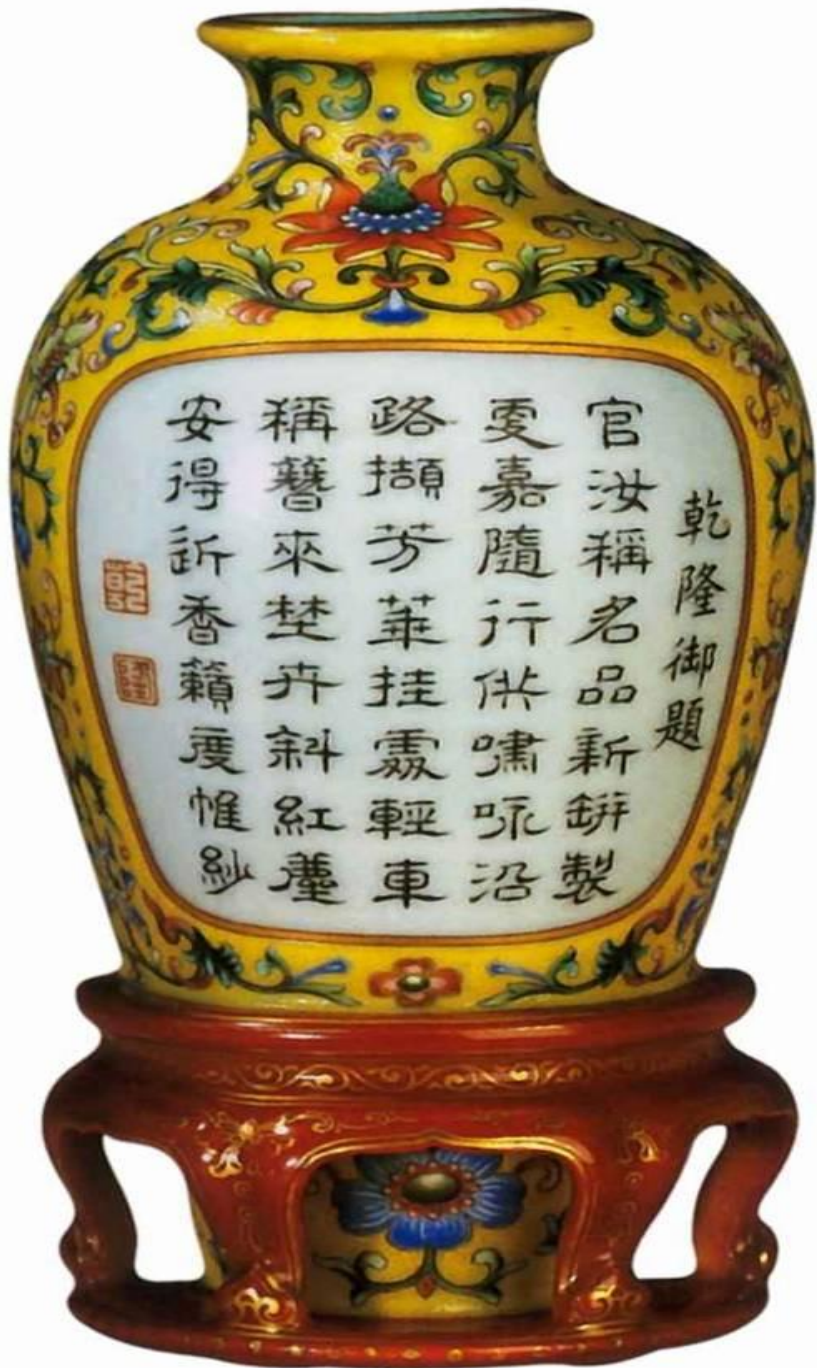 乾隆御題
官汝稱名品新缾製
更嘉隨行供嘯咏沿
路擷芳華挂處輕車
稱簪來埜卉斜紅塵
安得近香籟度帷紗
乾
隆